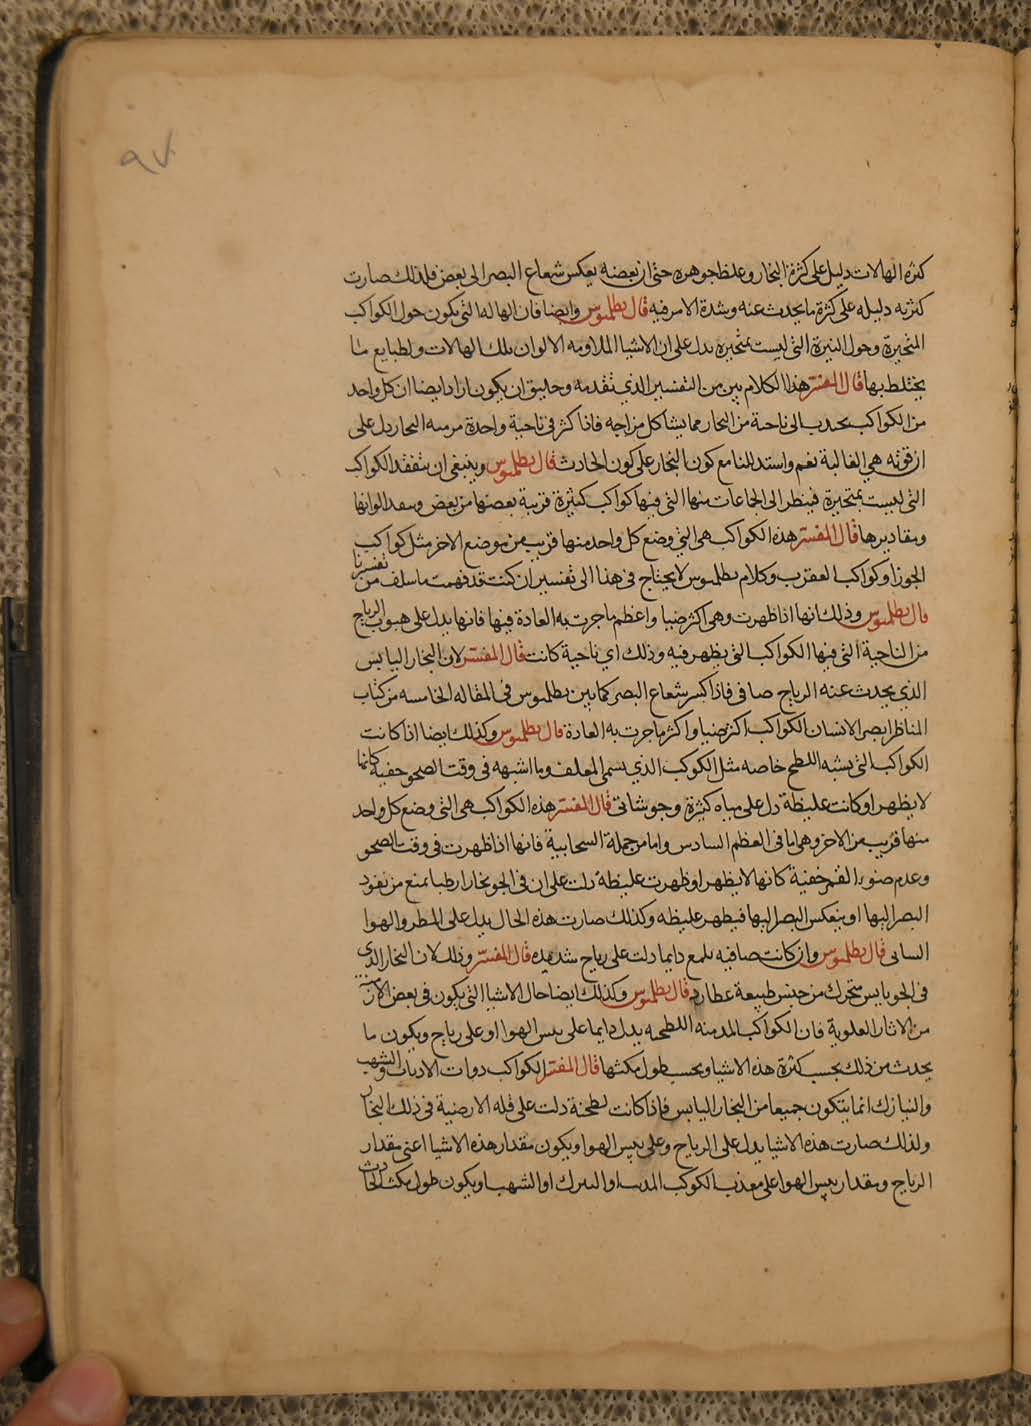 ٩٧
كثرة الهالات دليل على كثرة البخار وغلظ جوهره حتى ان بعضه يعكس شعاع البصر الى بعض فلذلك صارت
كثرته دليله على كثرة ما يحدث عنه وشدة الامر فيه قال بطلميوس وايضا فان الهاله التي يكون حول الكواكب
المتحيرة وحول النيرة التي ليست بمتحيرة يدل على ان الاشيا الملاومه الالوان تلك الهالات ولطبايع ما
يختلط بها قال المفسر هذا الكلام بين من التفسير الذي تقدمه وخليق ان يكون اراد ايضا ان كل واحد
من الكواكب يجذب الى ناحية من البخار مما يشاكل مزاجه فاذا كثر في ناحية واحدة من هذه البخار دل على
ان قوته هي الغالبة نعم واستدللنا مع كون البخار على كون الحادث قال بطلميوس وينبغي ان نتفقد الكواكب
التي ليست بمتحيرة فينظر الى الجماعات منها التي فيها كواكب كثيرة قريبة بعضها من بعض ويتفقد الوانها
ومقاديرها قال المفسر هذه الكواكب هي التي وضع كل واحد منها قريب من موضع الاخر مثل كواكب
الجوزا وكواكب العقرب وكلام بطلميوس لا يحتاج في هذا الى تفسير ان كنت قد فهمت ما سلف من تفسيرنا
قال بطلميوس وذلك انها اذا ظهرت وهي اكثر ضيا واعظم ما جرت به العادة فيها فانها يدل على هبوب الرياح
من الناحية التي فيها الكواكب التي يظهر فيه وذلك اي ناحية كانت قال المفسر لان البخار اليابس
الذي يحدث عنه الرياح صافي فاذا كسر شعاع البصر كما بين بطلميوس في المقاله الخامسه من كتاب
المناظر ابصر الانسان الكواكب اكثر ضيا واكثر ما جرت به العادة قال بطلميوس وكذلك ايضا اذا كانت
الكواكب التي يشبه اللطخ خاصه مثل الكوكب الذي يسمى المعلف وما اشبهه في وقت الصحو خفية كانها
لا يظهر او كانت غليظة دل على مياه كثيرة وجو شاتي قال المفسر هذه الكواكب هي التي وضع كل واحد
منها قريب من الاخر وهي اما في العظم السادس واما من جملة السحابية فانها اذا ظهرت في وقت الصحو
وعدم ضوء القمر خفية كانها لا يظهر او ظهرت غليظة دلت على ان في الجو بخارا رطبا يمنع من نفوذ
البصر اليها او ينعكس البصر اليها فيظهر غليظه وكذلك صارت هذه الحال يدل على المطر والهوا
الساتي قال بطلميوس وان كانت صافيه تلمع دايما دلت على رياح شديده قال المفسر وذلك لان البخار الذي
في الجو يابس متحرك من جنس طبيعة عطارد قال بطلميوس وكذلك ايضا حال الاشيا التي يكون في بعض الازمنة
من الاثار العلوية فان الكواكب المذنبه اللطخيه يدل دايما على يبس الهوا او على رياح ويكون ما
يحدث من ذلك بحسب كثرة هذه الاشيا وبحسب طول مكثها قال المفسر الكواكب ذوات الاذناب والشهب
والنيازك انما يتكون جميعا من البخار اليابس فاذا كانت لطخية دلت على قله الارضية في ذلك البخار
ولذلك صارت هذه الاشيا يدل على الرياح وعلى يبس الهوا ويكون مقدار هذه الاشيا اعني مقدار
الرياح ومقدار يبس الهوا على الكوكب المذنب او النيزك او الشهب ويكون طول مكث الحادث